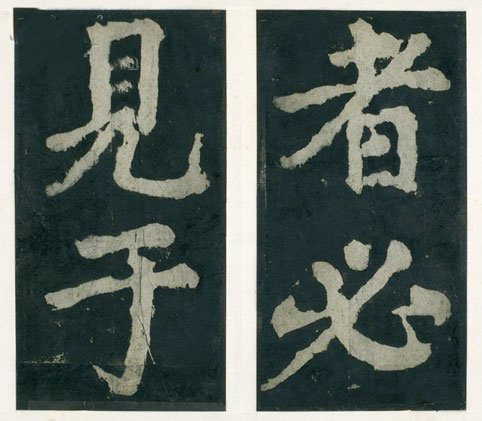 者必
見于